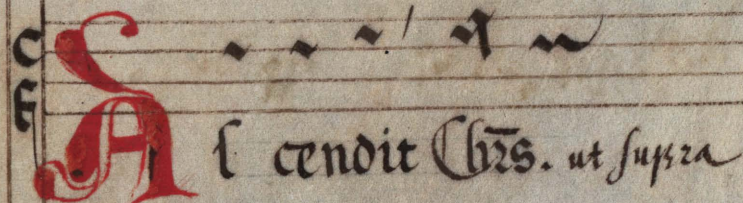 Aſ cendit Chr̄s. ut ſupra